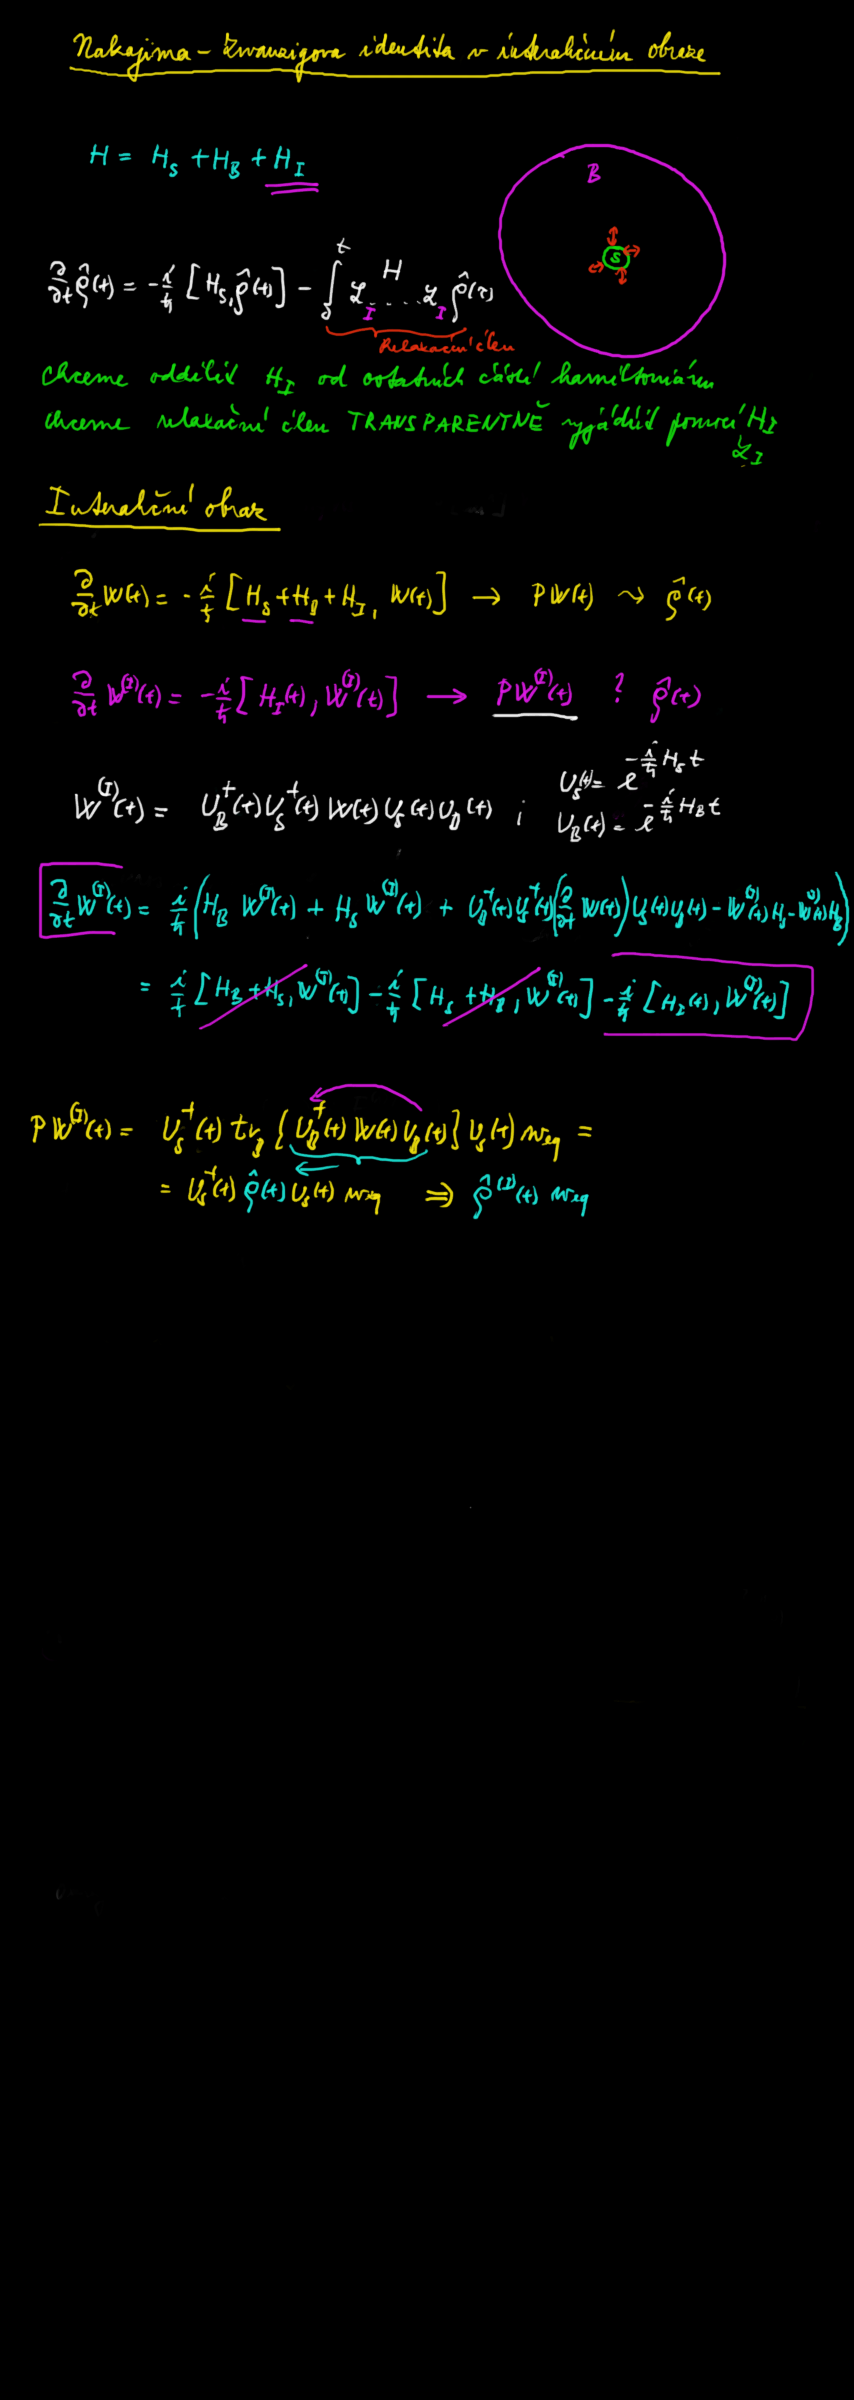 Nakajima-Zwanzigova identita v interakčním obraze
H = H_S + H_B + H_I
B
S
∂/∂t ρ̂(t) = -i/ħ [H_S, ρ̂(t)] - ∫_0^t ℒ_I ..H.. ℒ_I ρ̂(τ)
Relaxační člen
chceme oddělit H_I od ostatních částí hamiltoniánu
chceme relaxační člen TRANSPARENTNĚ vyjádřit pomocí H_I
ℒ_I
Interakční obraz
∂/∂t W(t) = -i/ħ [H_S + H_B + H_I, W(t)] → PW(t) ⇝ ρ̂(t)
∂/∂t W^(I)(t) = -i/ħ [H_I(t), W^(I)(t)] → PW^(I)(t) ? ρ̂(t)
W^(I)(t) = U_B^†(t) U_S^†(t) W(t) U_S(t) U_B(t) ; U_S(t) = e^{-i/ħ H_S t}
U_B(t) = e^{-i/ħ H_B t}
∂/∂t W^(I)(t) = i/ħ (H_B W^(I)(t) + H_S W^(I)(t) + U_B^†(t) U_S^†(t) (∂/∂t W(t)) U_S(t) U_B(t) - W^(I)(t) H_S - W^(I)(t) H_B)
= i/ħ [H_B + H_S, W^(I)(t)] - i/ħ [H_S + H_B, W^(I)(t)] - i/ħ [H_I(t), W^(I)(t)]
PW^(I)(t) = U_S^†(t) tr_B {U_B^†(t) W(t) U_B(t)} U_S(t) w_eq =
= U_S^†(t) ρ̂(t) U_S(t) w_eq ⇒ ρ̂^(I)(t) w_eq